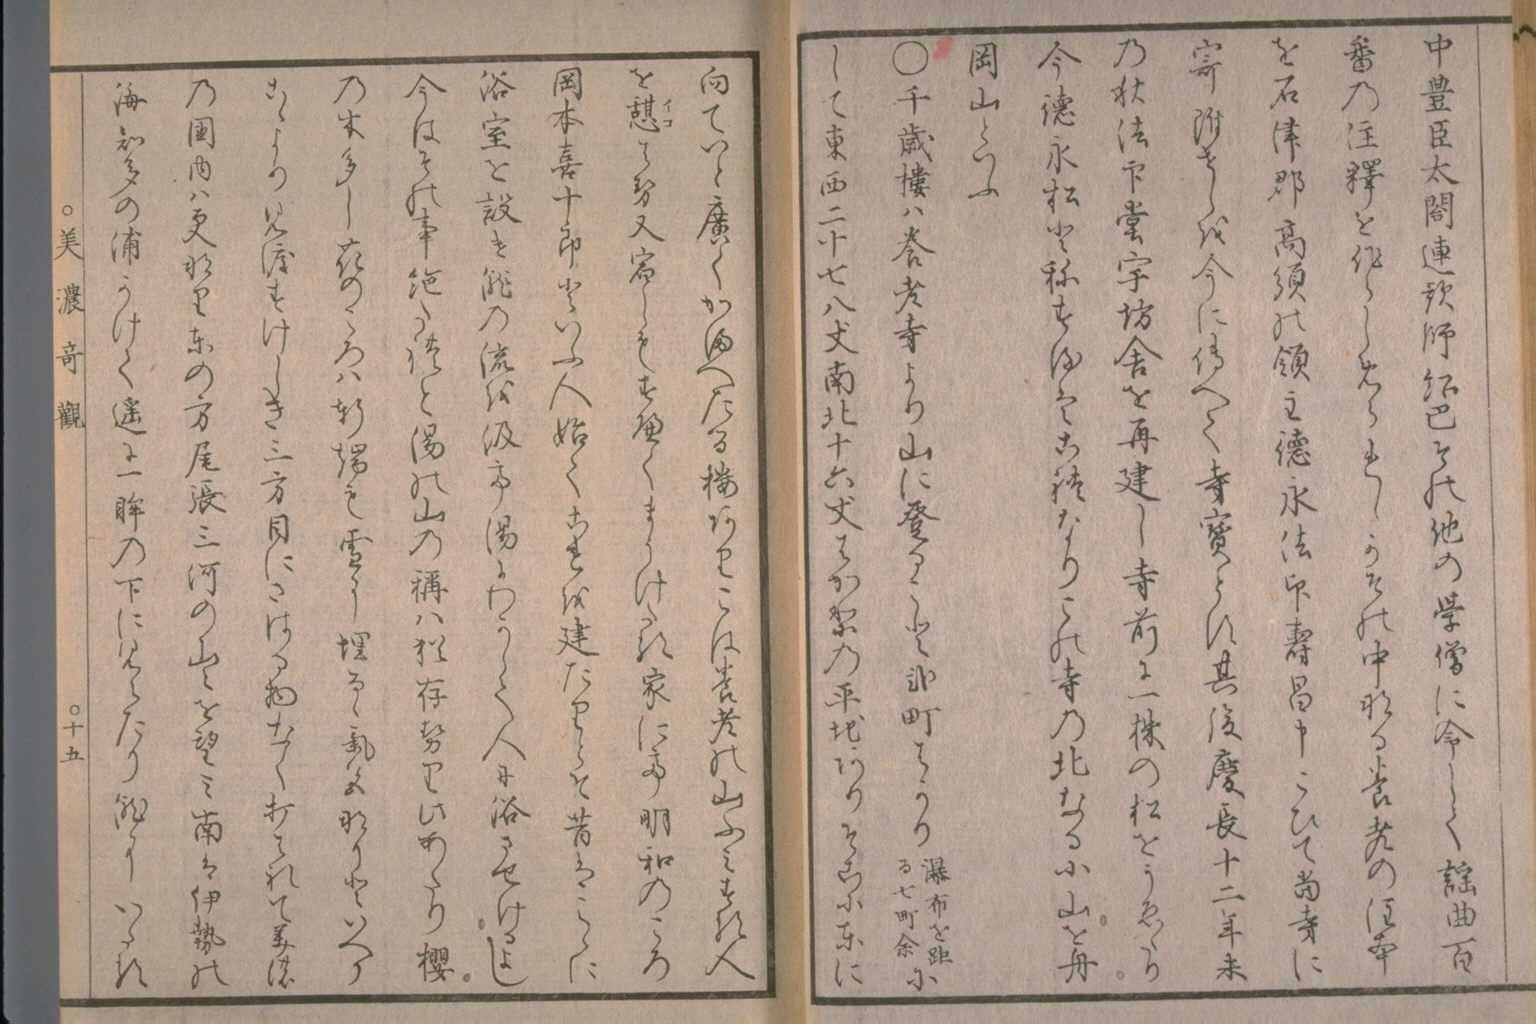 中豊臣太閤連歌師紹巴その他の学僧に令して謡曲百
番乃注釋を作らしめられしかその中なる養老の注本
を石津郡高須の領主徳永法印壽昌申こひて當寺に
寄附せしを今に傳へて寺寳とす其後慶長十二年未
乃秋法印堂宇坊舎を再建し寺前に一株の松をうゑたり
今徳永松と称するはこれなりこの寺乃北なる小山を舟
岡山といふ
〇千歳樓ハ養老寺より山に登ること弐町はかり
瀑布を距
る七町余
に
して東西二十七八丈南北十六丈はかりの平地ありそこに東に
向ていと廣くかまへたる樓ありこは養老の山ふみする人
を憩イコはせ又宿しもすへくまうけたる家にて明和のころ
岡本喜十郎といふ人始てこれを建たりとそ昔はここに
浴室を設き瀧の流を汲て湯にわかして人に浴させけるよし
今はその事絶たれと湯の山の稱ハ猶存せり此あたり櫻
乃木多し花のころハ軒端も雪に埋るゝ氣色なりといへり
こゝより見渡すけしき三方目にさはる物なく打はれて美濃
乃国内ハ更なり東の方尾張三河の山々を望み南は伊勢の
海知多の浦かけて遥に一眸乃下に見えたり瀧にいたる
〇美濃奇觀
〇十五